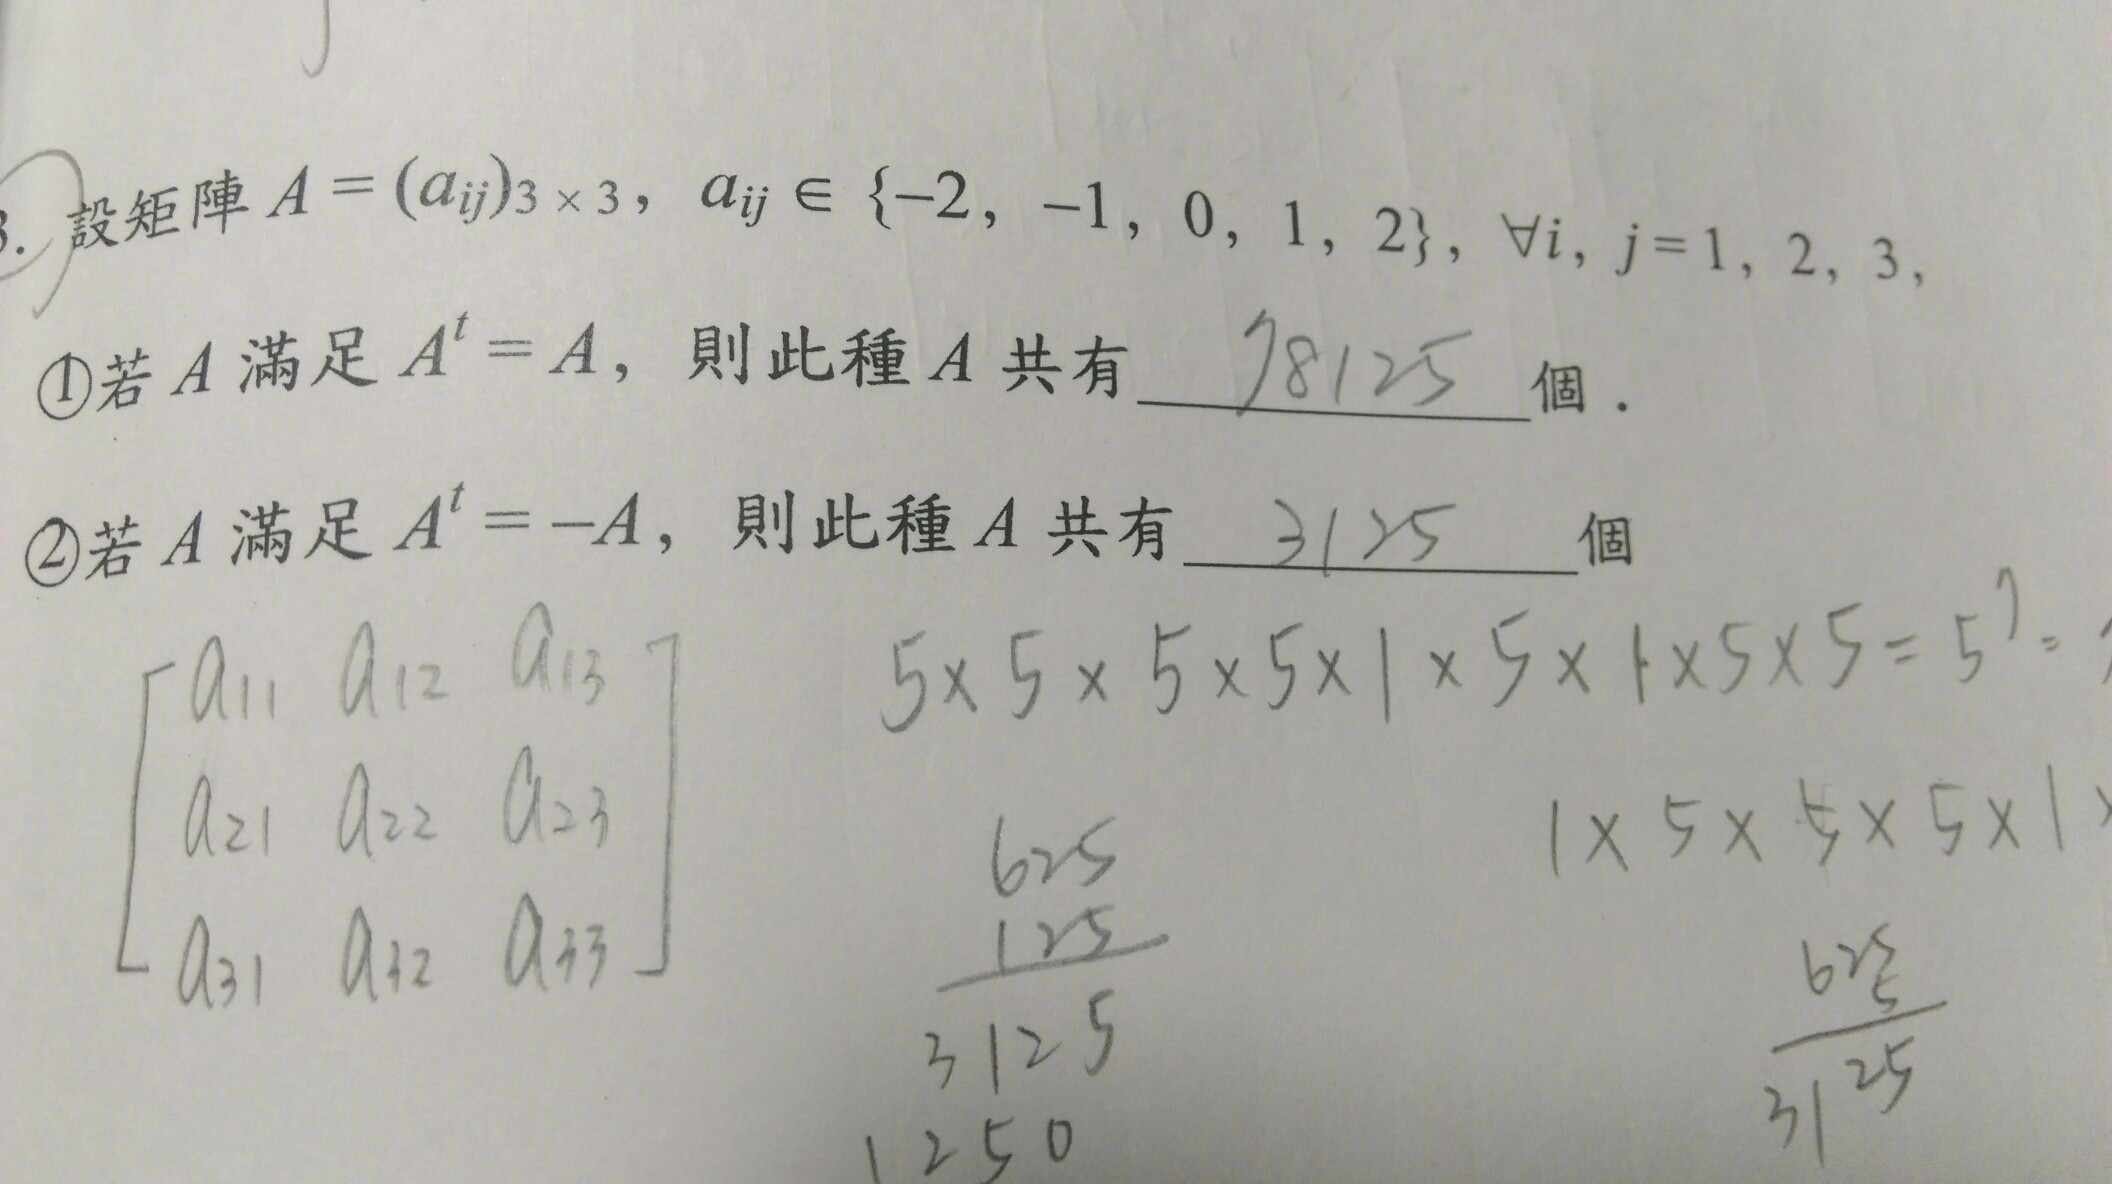 3. 設矩陣 A = (aij)3 × 3, aij ∈ {−2, −1, 0, 1, 2}, ∀i, j = 1, 2, 3,
①若 A 滿足 Aᵗ = A, 則此種 A 共有 78125 個.
②若 A 滿足 Aᵗ = −A, 則此種 A 共有 3125 個
a11 a12 a13
a21 a22 a23
a31 a32 a33
5 × 5 × 5 × 5 × 1 × 5 × 1 × 5 × 5 = 5⁷ =
1 × 5 × 5 × 5 × 1 ×
625
125
3125
1250
625
5
3125